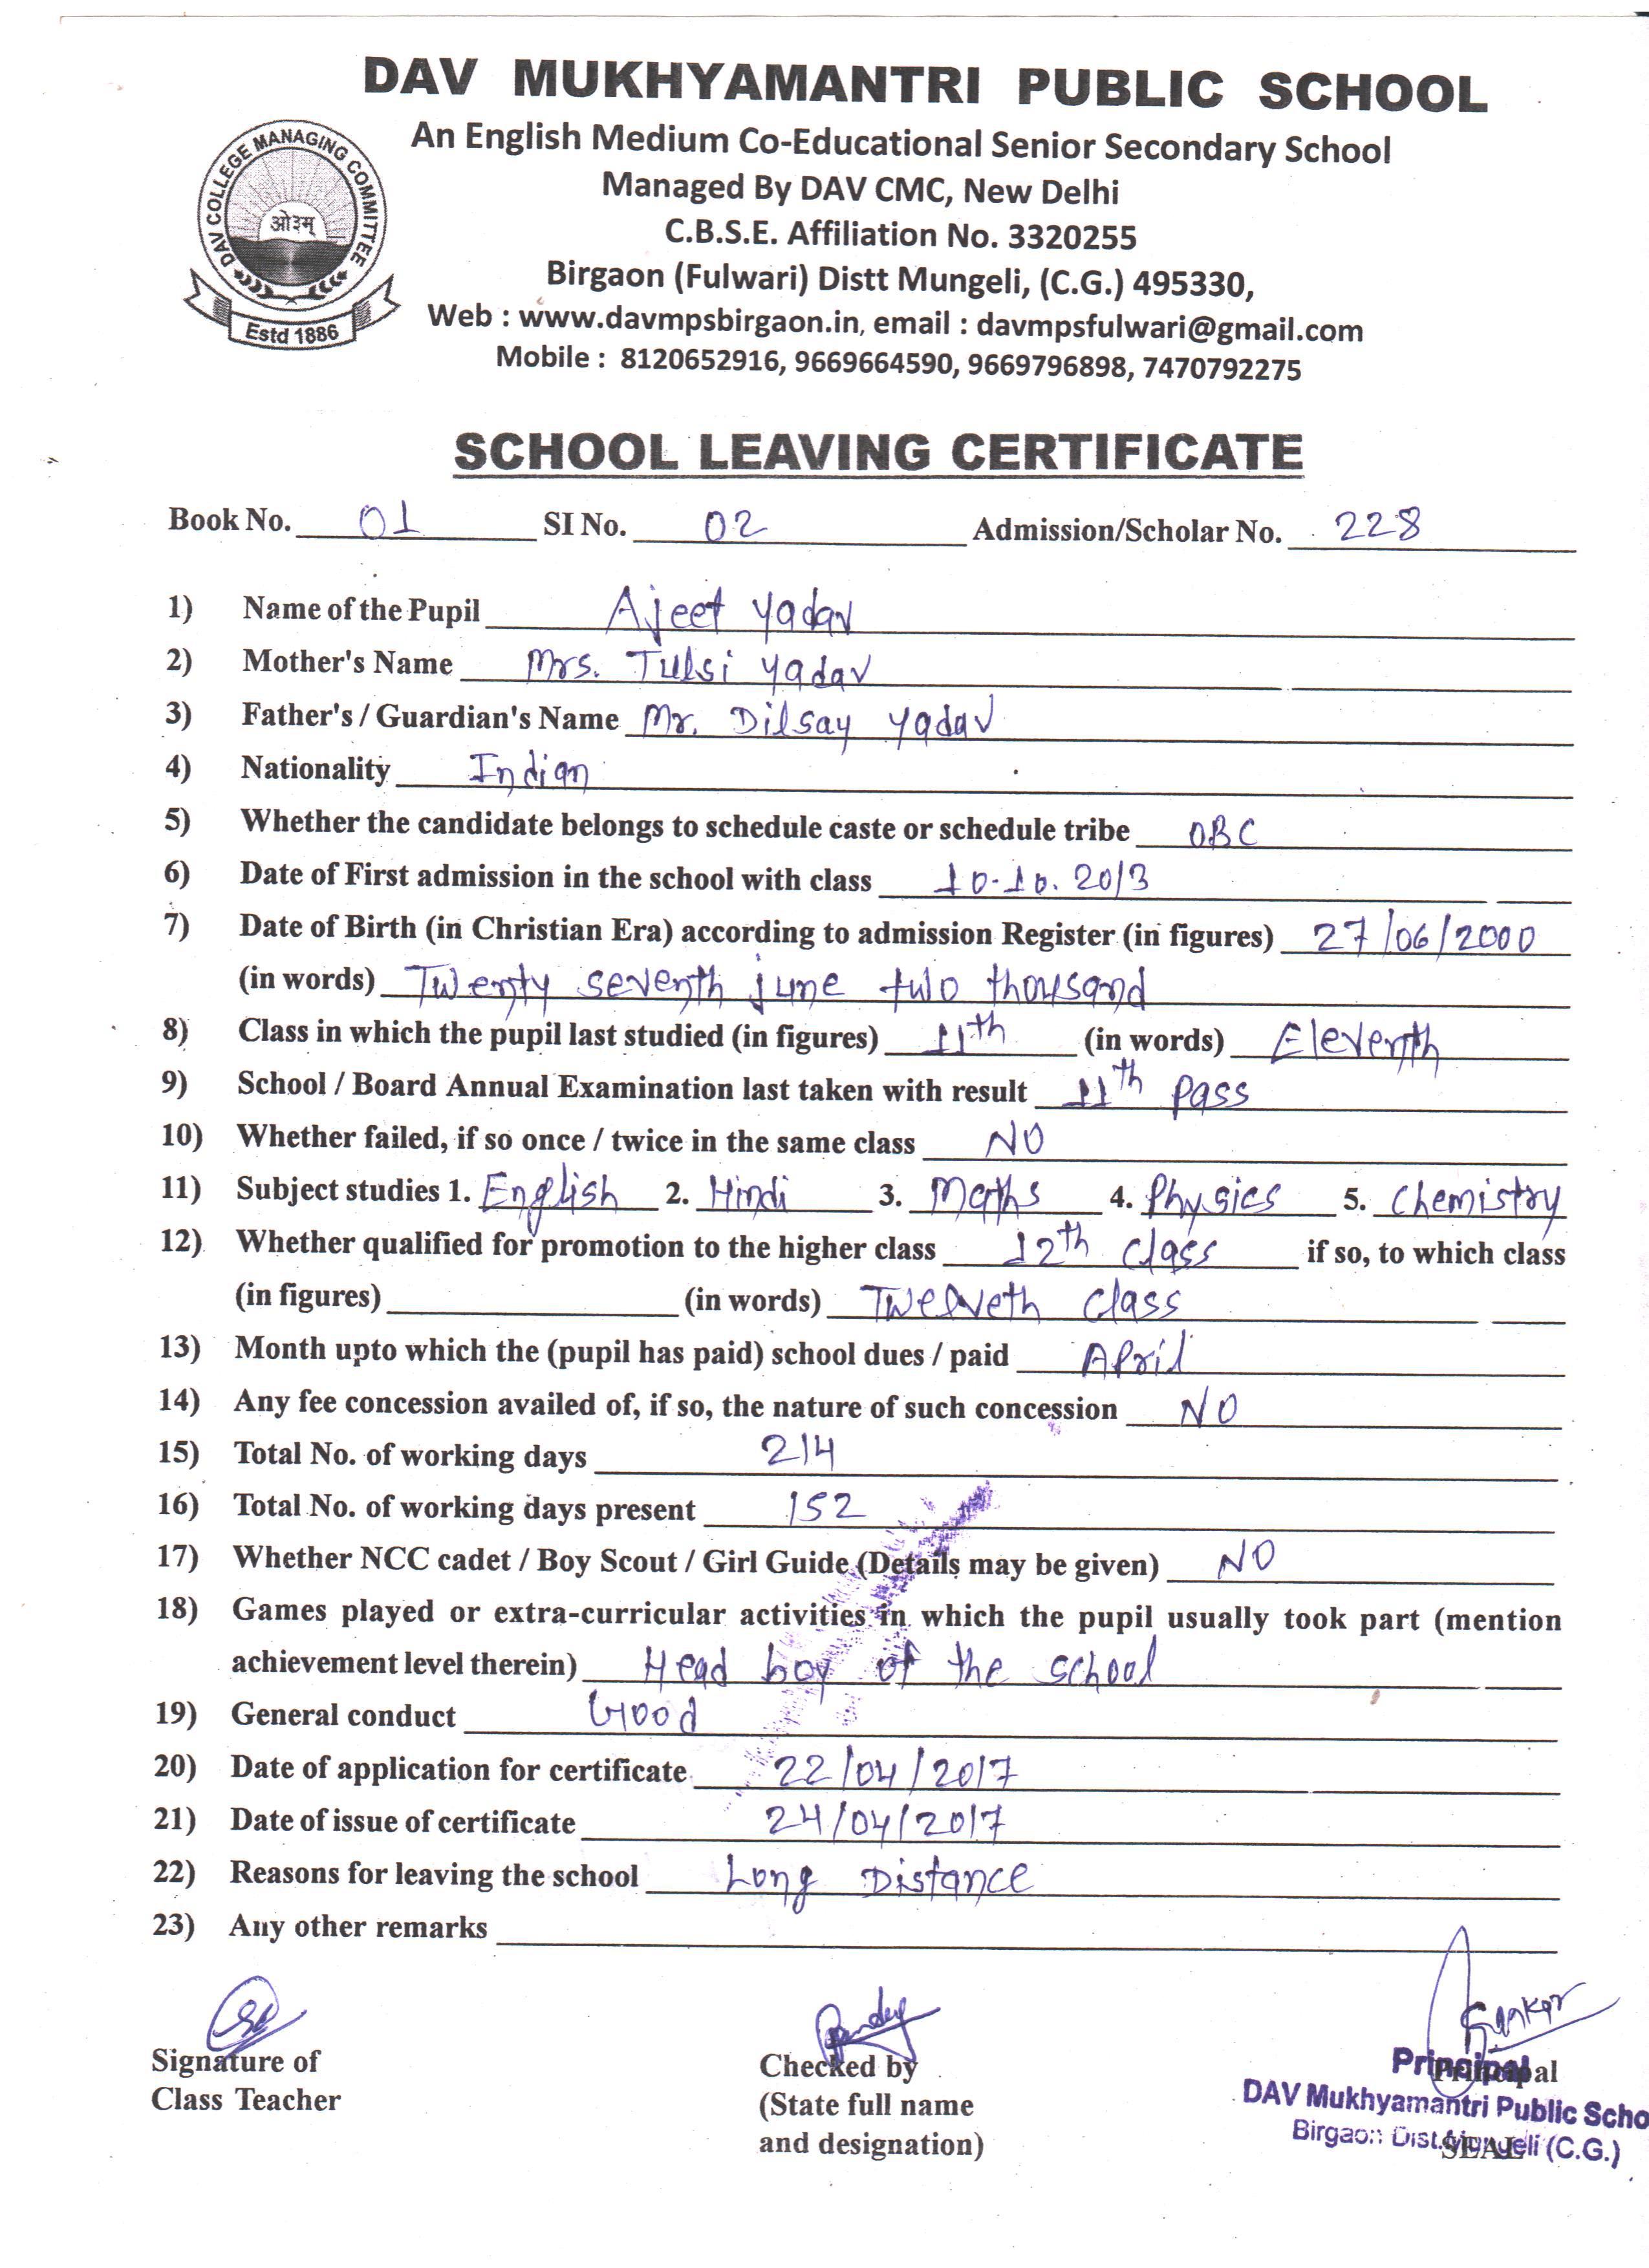 DAV MUKHYAMANTRI PUBLIC SCHOOL
An English Medium Co-Educational Senior Secondary School
Managed By DAV CMC, New Delhi
C.B.S.E. Affiliation No. 3320255
Birgaon (Fulwari) Distt Mungeli, (C.G.) 495330,
Web : www.davmpsbirgaon.in, email : davmpsfulwari@gmail.com
Mobile : 8120652916, 9669664590, 9669796898, 7470792275
DAV COLLEGE MANAGING COMMITTEE
ओ३म्
Estd 1886
SCHOOL LEAVING CERTIFICATE
Book No. 01 SI No. 02 Admission/Scholar No. 228
1) Name of the Pupil Ajeet Yadav
2) Mother's Name Mrs. Tulsi Yadav
3) Father's / Guardian's Name Mr. Dilsay Yadav
4) Nationality Indian
5) Whether the candidate belongs to schedule caste or schedule tribe OBC
6) Date of First admission in the school with class 10-10.2013
7) Date of Birth (in Christian Era) according to admission Register (in figures) 27/06/2000
(in words) Twenty seventh june two thousand
8) Class in which the pupil last studied (in figures) 11th (in words) Eleventh
9) School / Board Annual Examination last taken with result 11th pass
10) Whether failed, if so once / twice in the same class NO
11) Subject studies 1. English 2. Hindi 3. Maths 4. Physics 5. Chemistry
12) Whether qualified for promotion to the higher class 12th class if so, to which class
(in figures) (in words) Twelveth class
13) Month upto which the (pupil has paid) school dues / paid April
14) Any fee concession availed of, if so, the nature of such concession NO
15) Total No. of working days 214
16) Total No. of working days present 152
17) Whether NCC cadet / Boy Scout / Girl Guide (Details may be given) NO
18) Games played or extra-curricular activities in which the pupil usually took part (mention
achievement level therein) Head boy of the school
19) General conduct Good
20) Date of application for certificate 22/04/2017
21) Date of issue of certificate 24/04/2017
22) Reasons for leaving the school Long Distance
23) Any other remarks
Signature of
Class Teacher
Checked by
(State full name
and designation)
Principal
Principal
DAV Mukhyamantri Public Scho
Birgaon Dist. Mungeli (C.G.)
SEAL